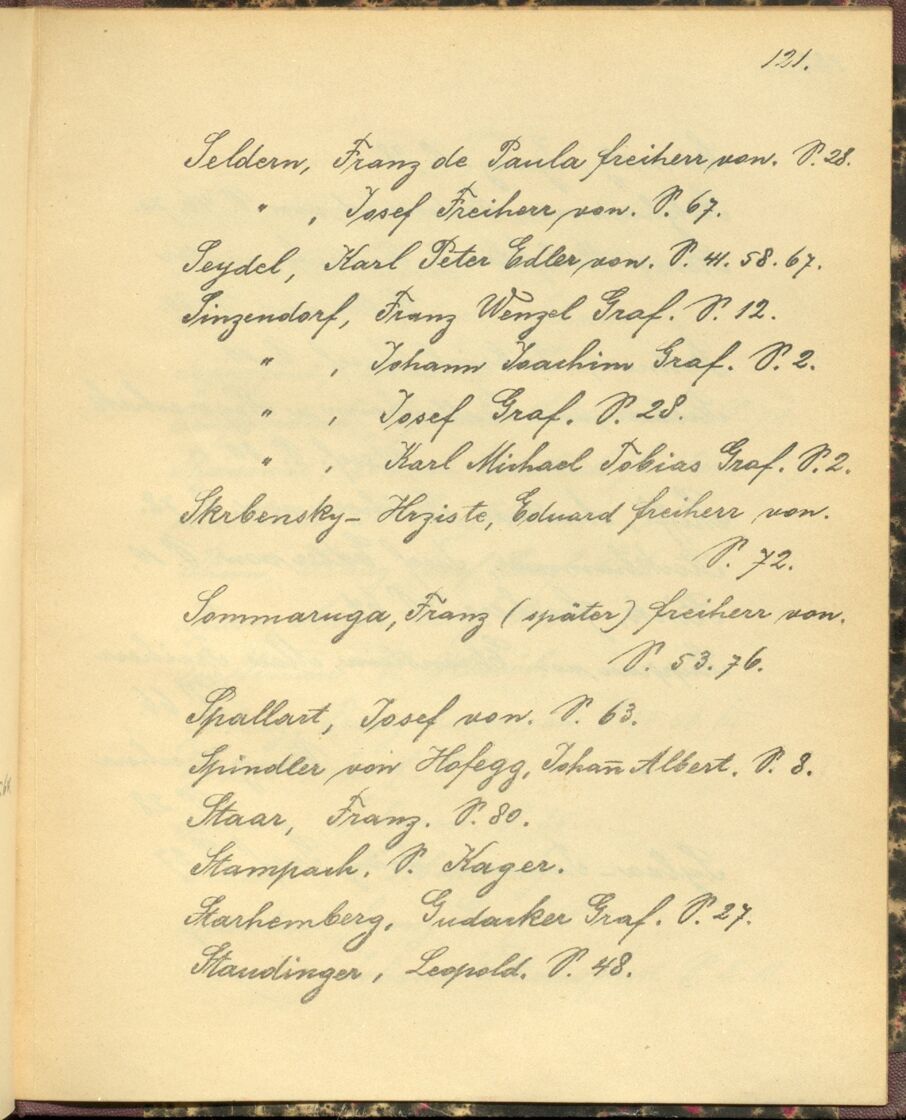 121.
Seldern, Franz de Paula freiherr von. S. 28.
" , Josef Freiherr von. S. 67.
Seydel, Karl Peter Edler von. S. 41. 58. 67.
Sinzendorf, Franz Wenzel Graf. S. 12.
" , Johann Joachim Graf. S. 2.
" , Josef Graf. S. 28.
" , Karl Michael Tobias Graf. S. 2.
Skrbensky - Hrziste, Eduard freiherr von.
S. 72.
Sommaruga, Franz (später) freiherr von.
S. 53. 76.
Spallart, Josef von. S. 63.
Spindler von Hofegg, Johan̅ Albert. S. 8.
Staar, Franz. S. 80.
Stampach. S. Kager.
Starhemberg, Gudacker Graf. S. 27.
Staudinger, Leopold. S. 48.